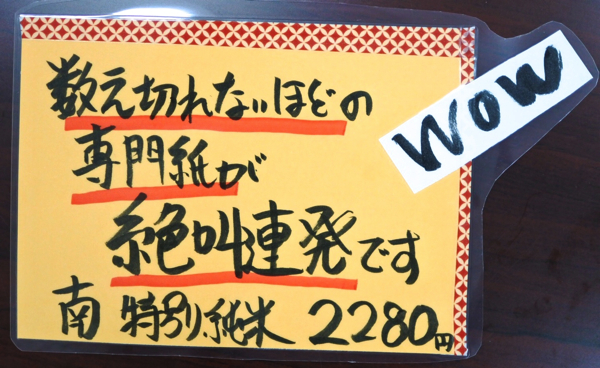 数え切れないほどの
wow
専門紙が
絶叫連発です
南 特別純米 2280円